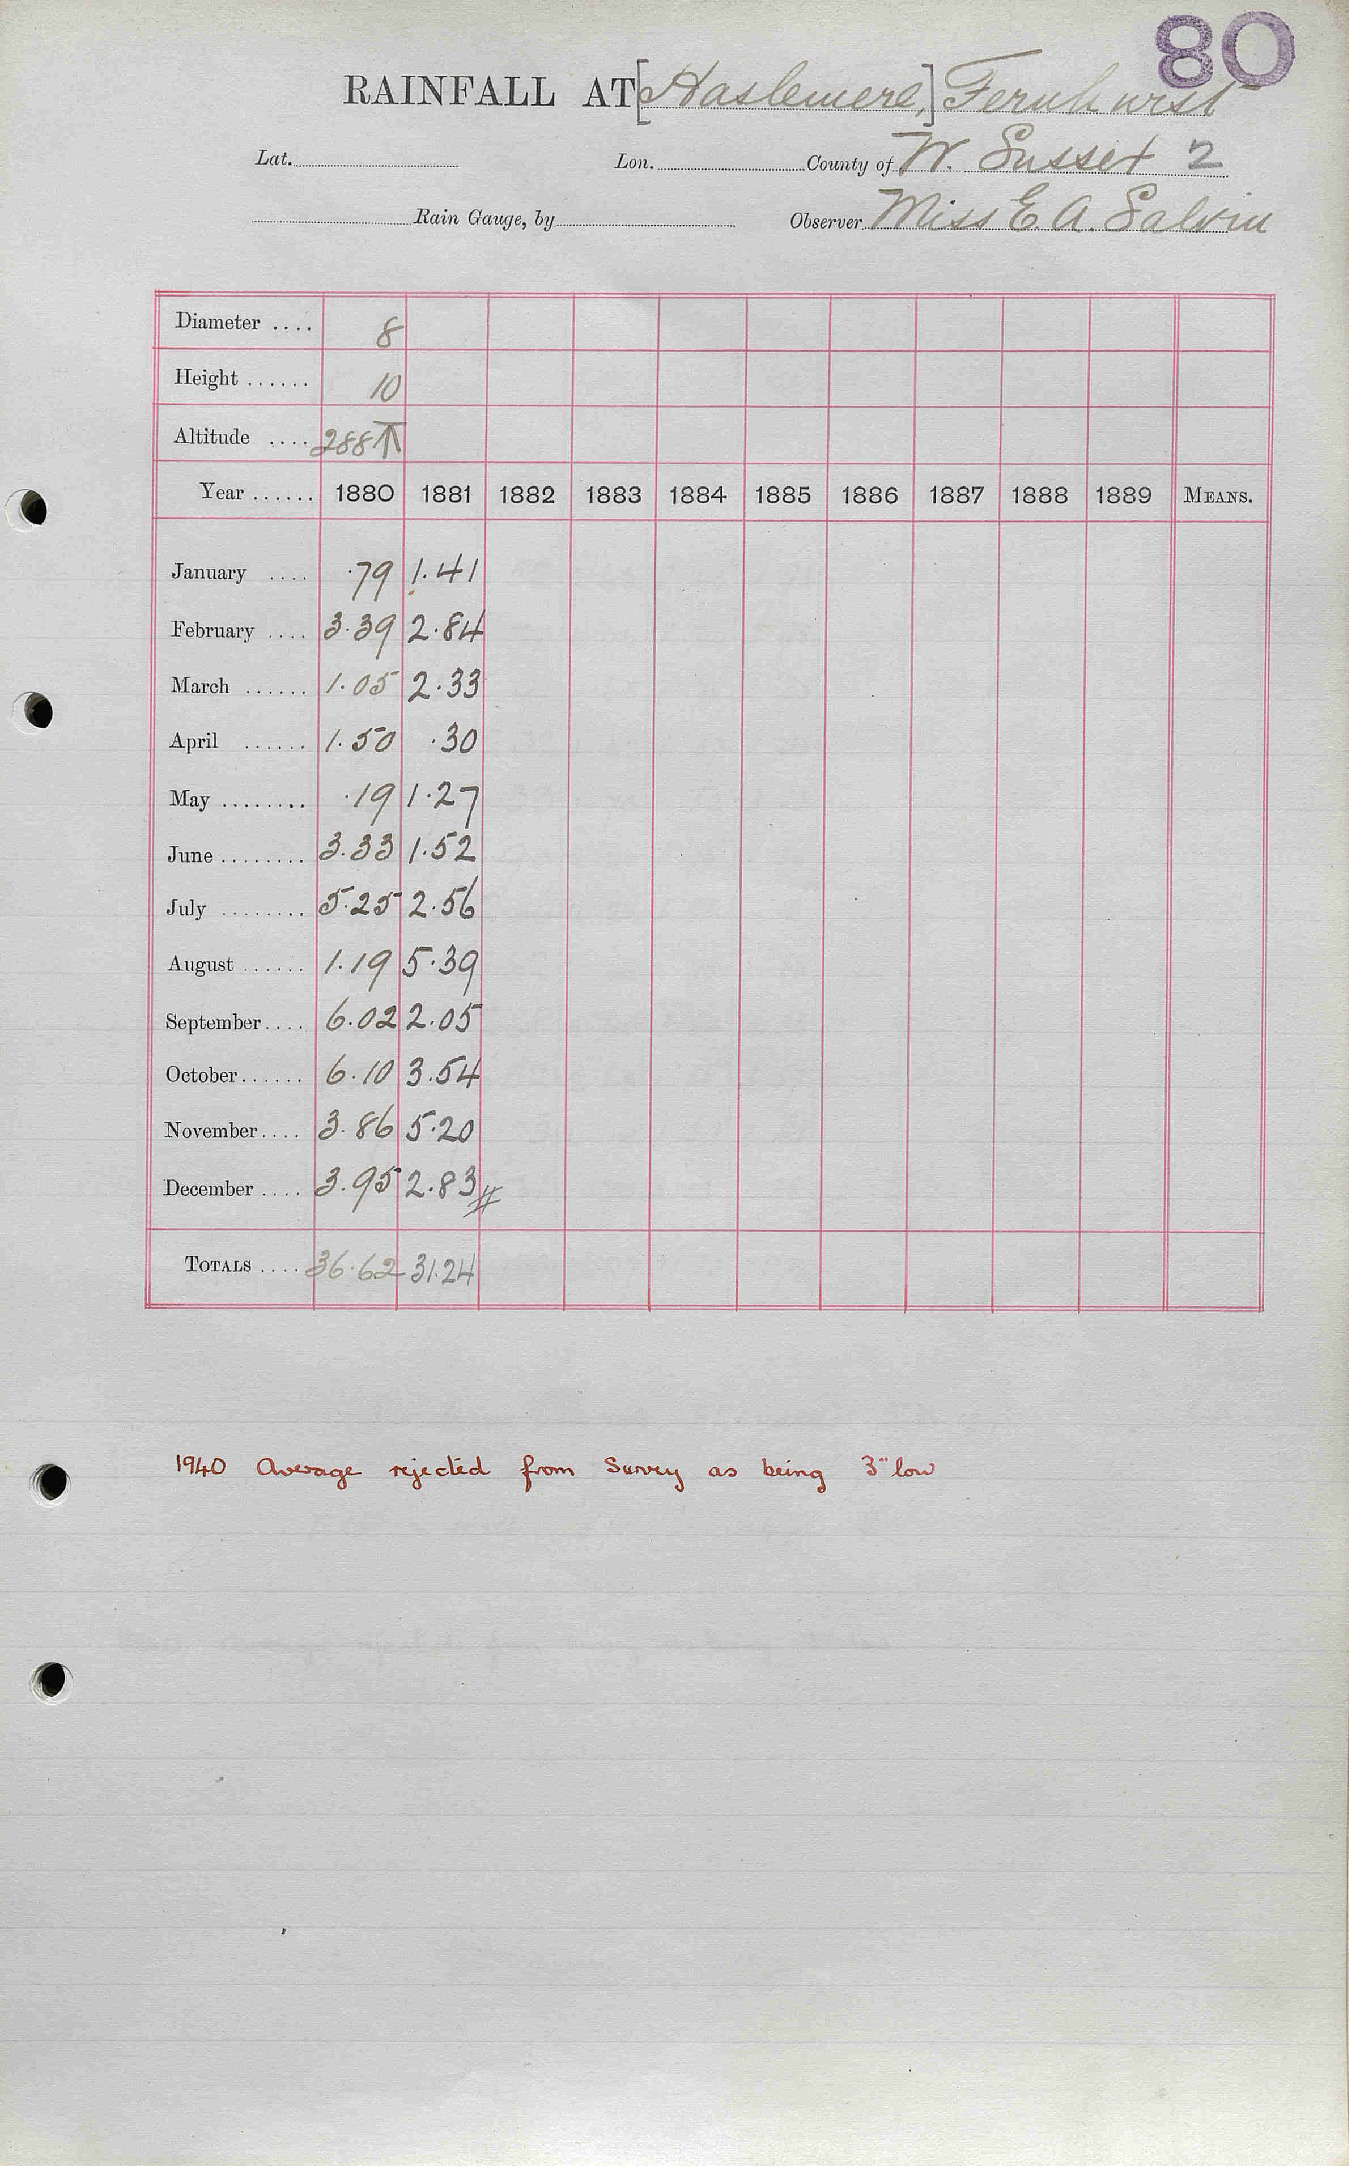 80
RAINFALL AT [Haslemere,] Fernhurst
Lat. Lon. County of W. Sussex 2
Rain Gauge, by Observer Miss E. A. Salvin
Diameter .... 8
Height ...... 10
Altitude .... 288 T
Year ...... 1880 1881 1882 1883 1884 1885 1886 1887 1888 1889 MEANS.
January .... .79 1.41
February .... 3.39 2.84
March ...... 1.05 2.33
April ...... 1.50 .30
May ........ .19 1.27
June ........ 3.33 1.52
July ........ 5.25 2.56
August ...... 1.19 5.39
September.... 6.02 2.05
October...... 6.10 3.54
November.... 3.86 5.20
December .... 3.95 2.83
TOTALS .... 36.62 31.24
1940 Average rejected from Survey as being 3" low